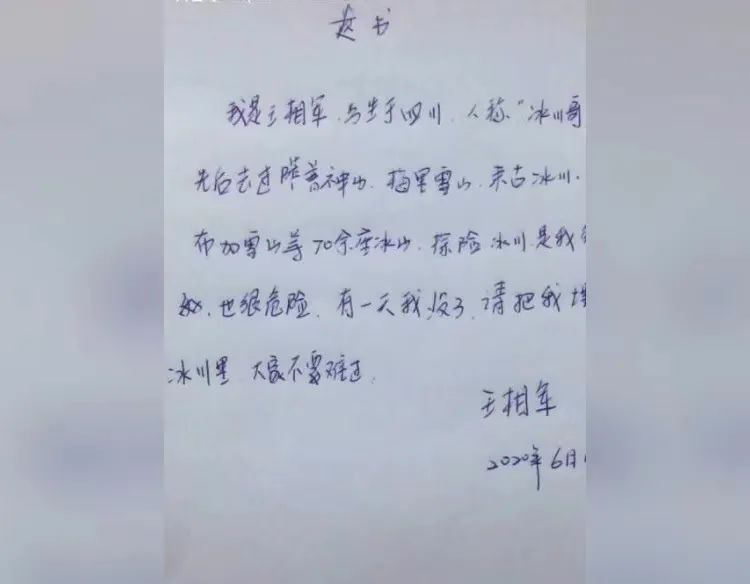 遗书
我是王相军,出生于四川,人称"冰川哥
先后去过 神山、梅里雪山、来古冰川、
布加雪山等70余座冰山,探险冰川是我
也很危险,有一天我没了,请把我埋
冰川里,大家不要难过。
王相军
2020年6月